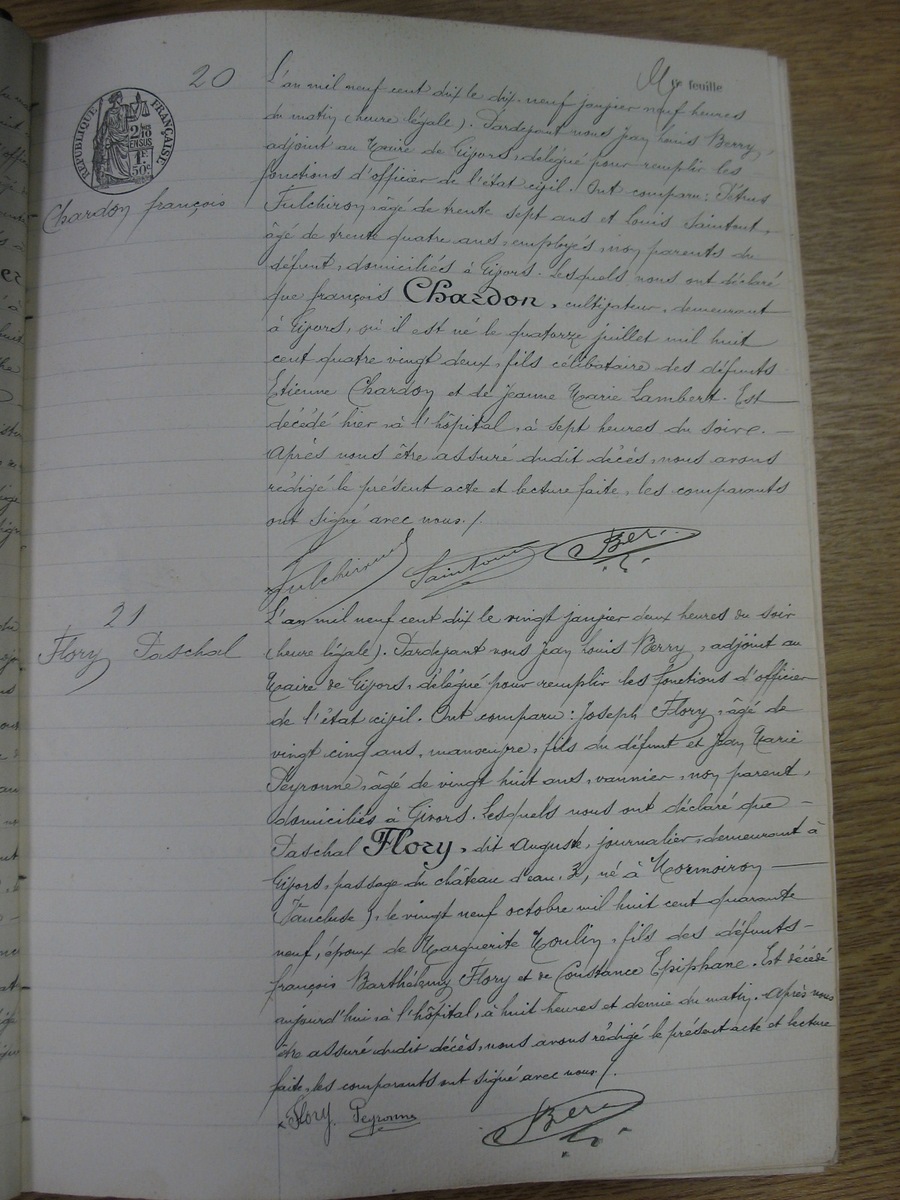 20
feuille
RÉPUBLIQUE FRANÇAISE
2/10
EN SUS
1F
50c
Chardon françois
L'an mil neuf cent dix le dix-neuf janvier neuf heures
du matin (heure légale). Pardevant nous Jean Louis Berry,
adjoint au Maire de Givors, délégué pour remplir les
fonctions d'officier de l'état civil. Ont comparu: Pétrus
Fulchiron, âgé de trente sept ans et Louis Saintout,
âgé de trente quatre ans, employés, non parents du
défunt, domiciliés à Givors. Lesquels nous ont déclaré
que françois Chardon, cultivateur, demeurant
à Givors, où il est né le quatorze juillet mil huit
cent quatre vingt deux, fils célibataire des défunts
Etienne Chardon et de Jeanne Marie Lambert. Est
décédé hier, à l'hôpital, à sept heures du soir. —
Après nous être assuré dudit décès, nous avons
rédigé le présent acte et lecture faite, les comparants
ont signé avec nous./.
Fulchiron Saintout Ber
21
Flory Paschal
L'an mil neuf cent dix le vingt janvier deux heures du soir
(heure légale). Pardevant nous Jean Louis Berry, adjoint au
Maire de Givors, délégué pour remplir les fonctions d'officier
de l'état civil. Ont comparu: Joseph Flory, âgé de
vingt cinq ans, manœuvre, fils du défunt et Jean Marie
Peyronne, âgé de vingt huit ans, vannier, non parent,
domiciliés à Givors. Lesquels nous ont déclaré que —
Paschal Flory, dit Auguste, journalier, demeurant à
Givors, passage du château d'eau, 2, né à Mormoiron —
(Vaucluse), le vingt neuf octobre mil huit cent quarante
neuf, époux de Marguerite Moulin, fils des défunts —
françois Barthélemy Flory et de Constance Epiphane. Est décédé
aujourd'hui, à l'hôpital, à huit heures et demie du matin. Après nous
être assuré dudit décès, nous avons rédigé le présent acte et lecture
faite, les comparants ont signé avec nous./.
Flory Peyronne Ber